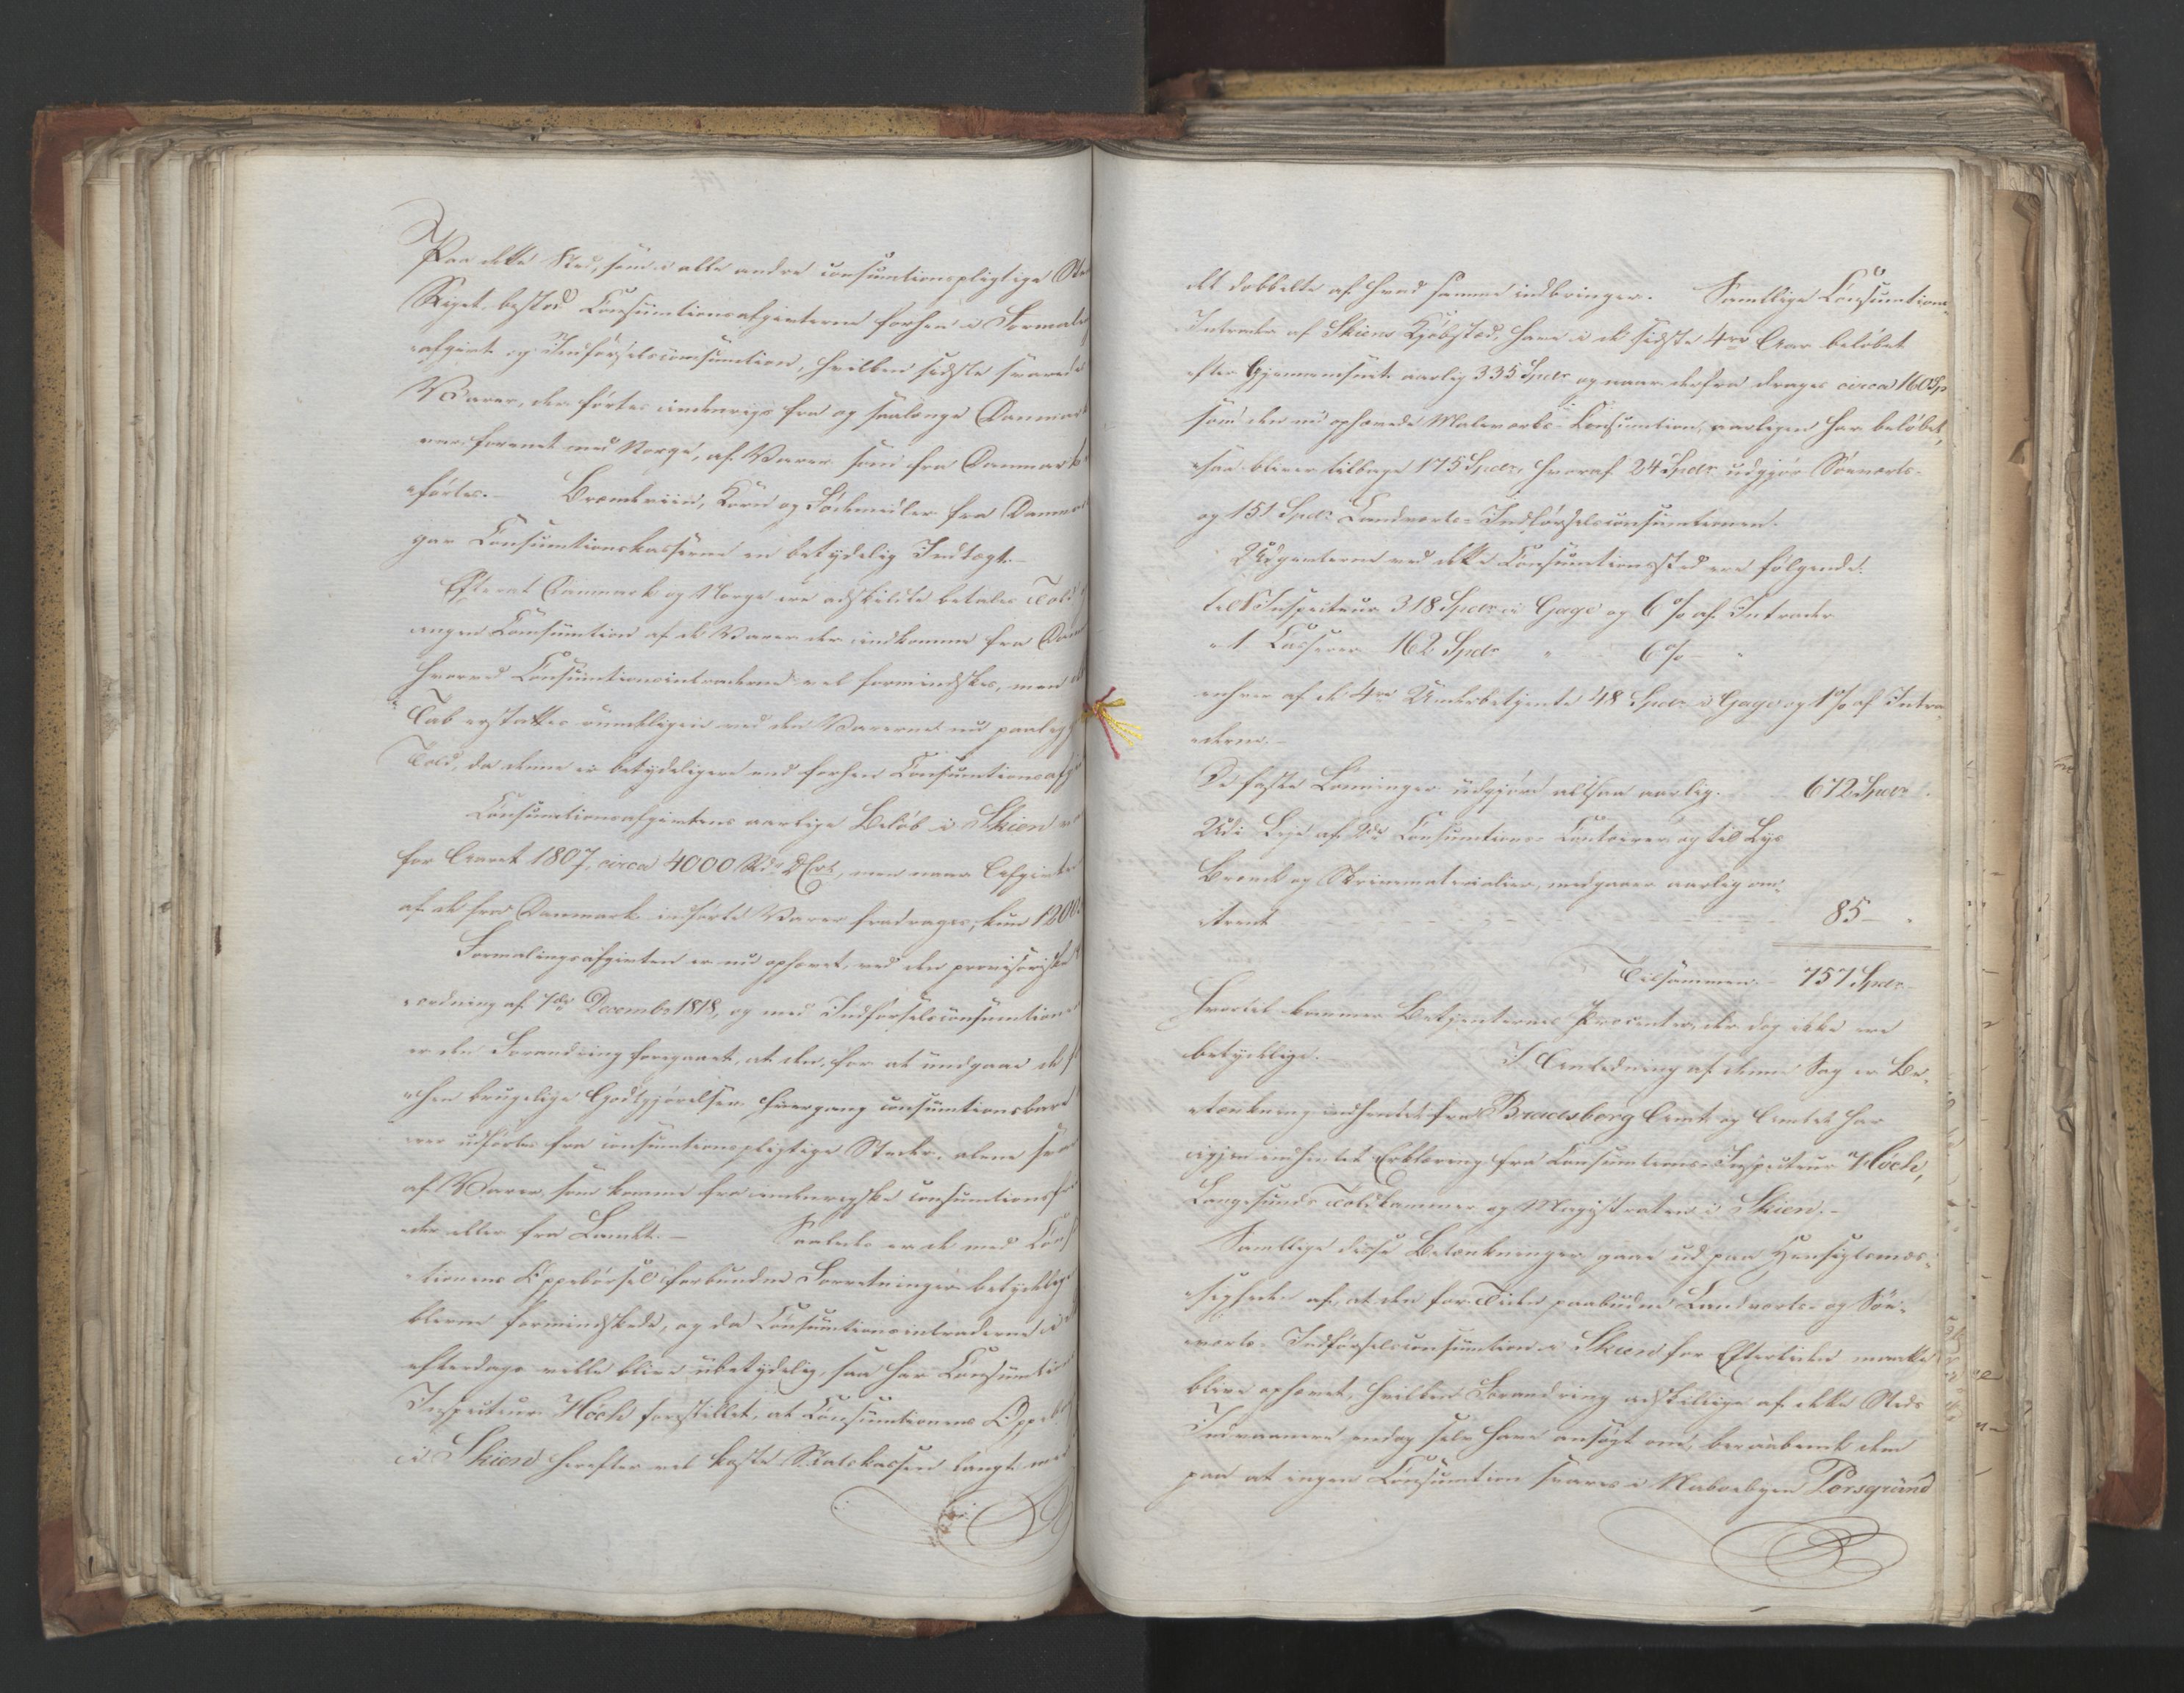 Paa dette Sted, som i alle andre consumtionspligtige
Riget bestod Consumtionsafgivterne forhen i Formalings
afgivt og Indførselsconsumtion, hvilken sidste svaredes
Varer, der førtes indenrigs fra og saalænge Danmark
var forenet med Norge, af Varer som fra Danmark
førtes. Brændeviin, Korn og Fødemidler fra Danmark
gav Consumtionskasserne en betydelig Indtægt.
Efterat Danmark og Norge ere adskildte betales Told
ingen Consumtion af de Varer der indkomme fra
hvorved Consumtionsintraderne vel formindskes, men
Tab erstattes rundeligen ved den Varerne nu paalagte
Told, da denne er betydeligere end forhen Consumtionsafgivten
Consumtionsafgivtens aarlige Beløb i Skien
for Aaret 1807 circa 4000 Rdr DCrt, men naar Afgivten
af de fra Danmark indførte Varer fradrages, kun 1200
Formalingsafgivten er nu ophævet, ved den provisoriske
ordning af 7de Decembr 1818, og med Indførselsconsumtionen
er den Forandring foregaaet, at den, for at undgaae de
hen brugelige Godtgjørelser hvergang consumtionsbare
rer udførtes fra consumtionspligtige Stæder, alene
af Varer, som komme fra indenrigske consumtionsfrie
der eller fra Landet. Saaledes er de med
tionens Oppebørsel forbundne Forretninger betydelig
blevne formindskede, og da Consumtionsintraderne
efterdags ville blive ubetydelig, saa har Consumtions
Inspecteur Höch forestillet, at Consumtionens Oppebørsel
i Skien herefter vil koste Statskassen langt
det dobbelte af hvad samme indbringer. Samtlige Consumtions
Intrader af Skiens Kjøbstad, have i de sidste 4re Aar beløbet
efter Gjennemsnit aarlig 335 Spdr og naar derfra drages circa 160 Sp
som den nu ophævede Maleværks-Consumtion, aarligen har beløbet,
saa bliver tilbage 175 Spdr, hvoraf 24 Spdr udgjør Søeværts-
og 151 Spdr Landværts-Indførselsconsumtionen.
Udgivterne ved dette Consumtionssted ere følgende:
til 1 Inspecteur 318 Spdr i Gage og 6 % af Intrader
" 1 Casserer 162 Spdr " 6 % "
enhver af de 4re Underbetjente 48 Spdr i Gage og 1 % af Intra
derne.
De faste Lønninger udgjøre altsaa aarlig. 672 Spdr
Udi Leje af 2de Consumtions-Contoirer og til Lys
Brænde og Skrivematerialier, medgaaer aarlig om-
trent 85 "
Tilsammen 757 Spdr
Hvortil kommer Betjenternes Procenter, der dog ikke ere
betydelige. I Anledning af denne Sag er Be-
tænkning indhentet fra Bradsberg Amt og Amtet har
igjen indhentet Erklæring fra Consumtions-Inspecteur Höch,
Langesunds Toldkammer og Magistraten i Skien.
Samtlige disse Betænkninger gaae ud paa Hensigtsmæs-
sigheden af, at den for Tiden paabudne Landværts- og Søe-
værts-Indførselsconsumtion i Skien for Eftertiden maatte
blive ophævet, hvilken Forandring adskillige af dette Steds
Indvaanere endog selv have ansøgt om, beraabende dem
paa at ingen Consumtion svares i Naboebyen Porsgrund